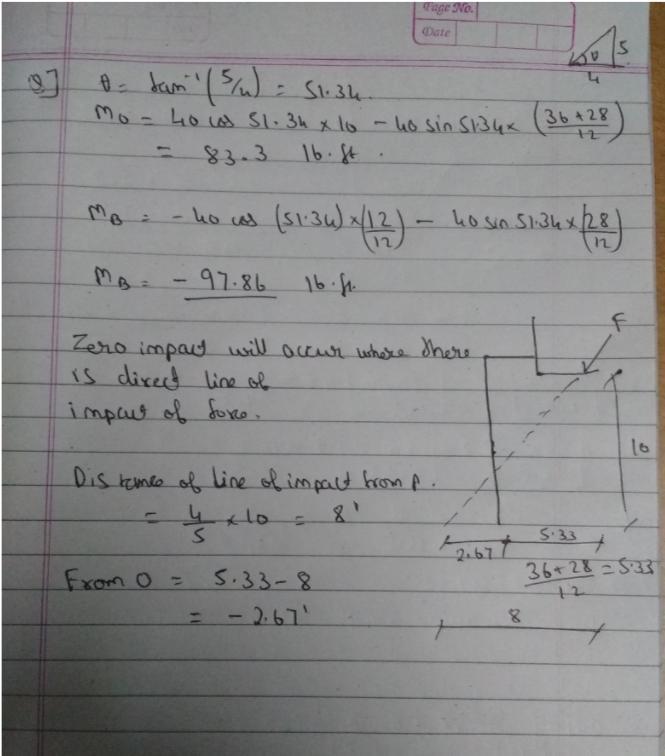 Page No.
Date
θ
5
4
Q] θ = tan⁻¹(5/4) = 51.34.
M₀ = 40 cos 51.34 × 10 − 40 sin 51.34 × (36+28/12)
= 83.3 lb.ft.
M_B = − 40 cos (51.34) × (12/12) − 40 sin 51.34 × (28/12)
M_B = − 97.86 lb.ft.
F
Zero impact will occur where there
is direct line of
impact of force.
10
Distance of line of impact from P.
= 4/5 × 10 = 8'
5.33
2.67
36+28/12 = 5.33
From O = 5.33 − 8
= − 2.67'
8